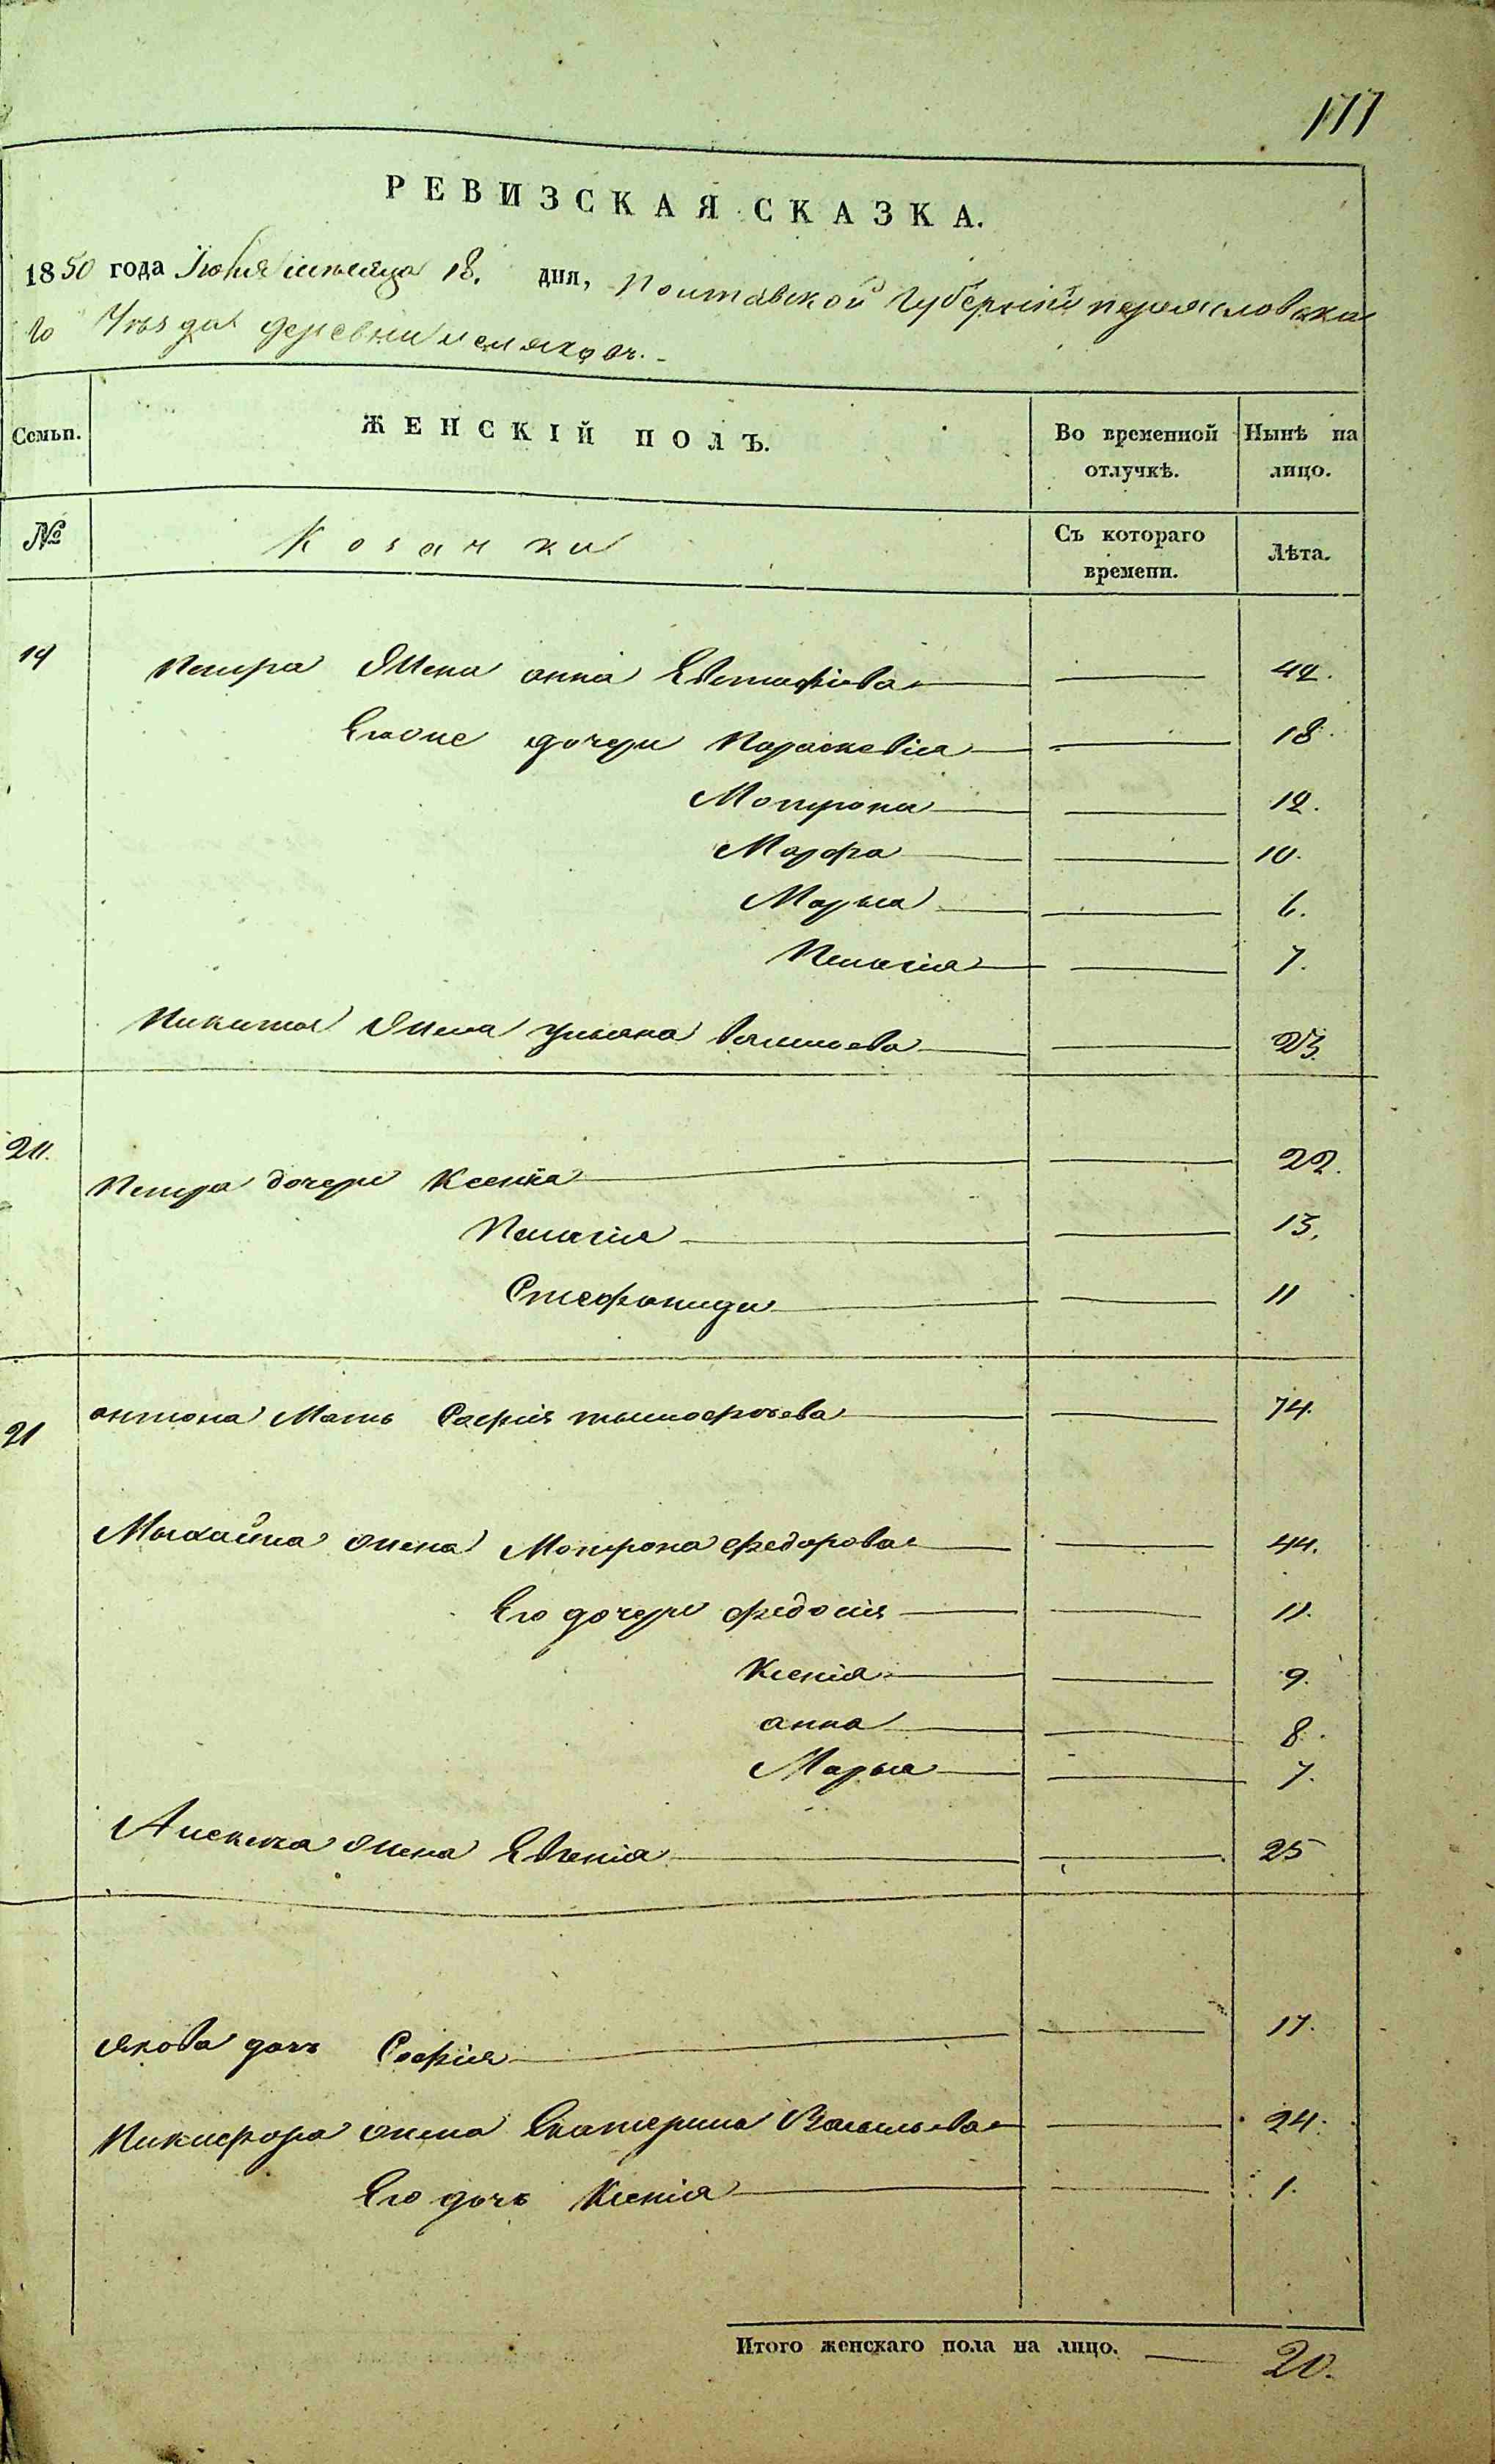 177
РЕВИЗСКАЯ СКАЗКА.
1850 года Іюня месяца 18. дня, Полтавской Губерніи переясловска
го Уѣзда деревни
Семьи. ЖЕНСКІЙ ПОЛЪ. Во временной отлучкѣ. Нынѣ на лицо.
№ Козачки Съ котораго времени. Лѣта.
19 Петра Жена анна Евстафіева 42.
Его же дочери Параскевіа 18.
Мотрона 12.
Марфа 10.
Марья 6.
Пелагія 7.
Никиты Жена Ульяна Васильева 23.
20. Петра дочери Ксенія 22.
Пелагія 13.
Стефанида 11
21 антона Мать Софія тымофѣева 74.
Мыхайла жена Мотрона федорова 44.
Его дочери федосія 11.
Ксенія 9.
анна 8.
Марья 7.
Алексѣя жена Евгенія 25
якова дочь Софія 17.
Никифора жена Екатерина Васильева 24.
Его дочь Ксенія 1.
Итого женскаго пола на лицо. 20.